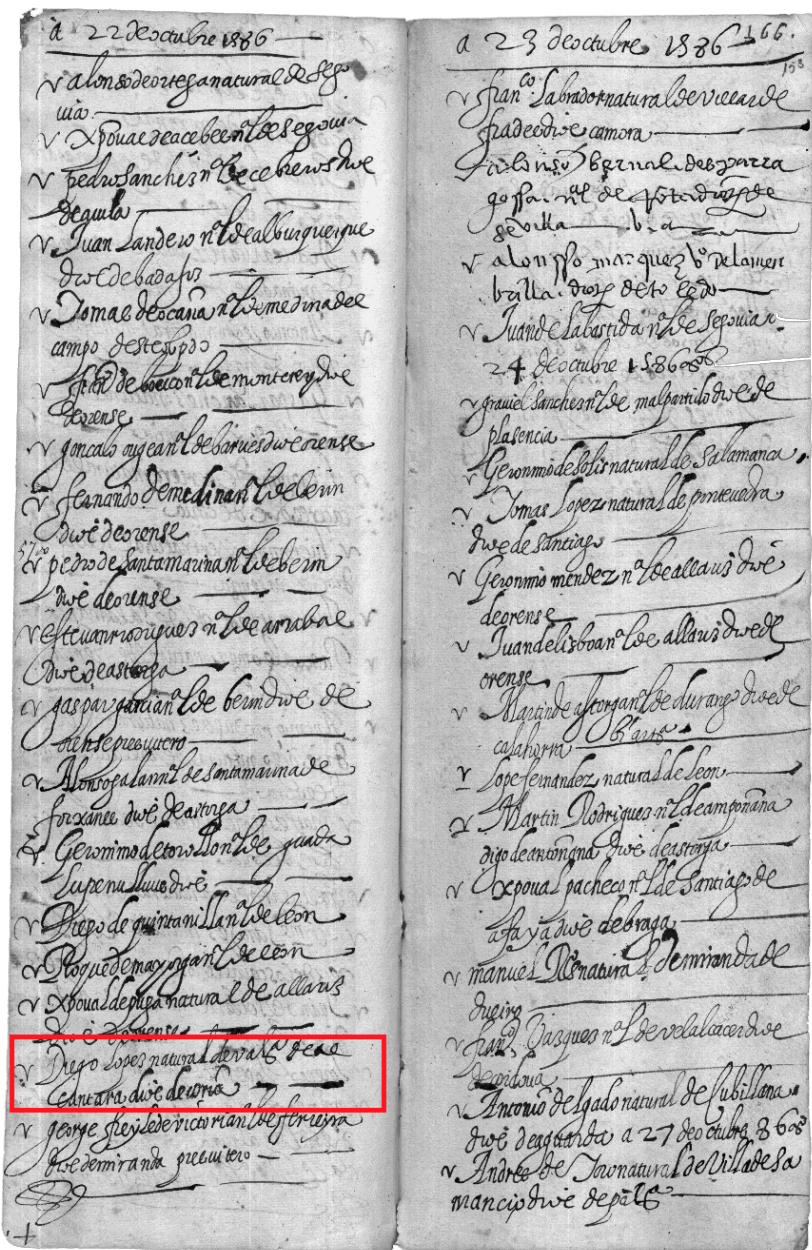 a 22 de octubre 1586
v alonso de ortega natural de sego
via
v xpoval de acebe nl de segovia
v pedro sanchez nl de cebreros dioe
de avila
v Juan Landero nl de alburquerque
dioe de badajoz
v Tomas de ocaña nl de medina del
campo
v fran de nl de monterey dioe
de orense
v gonçalo nl de dioe orense
v fernando de medina nl de berin
dioe de orense
v pedro de santa marina nl de berin
dioe de orense
v estevan rrodrigues nl de arrabal
dioe de astorga
v gaspar garcia nl de berin dioe de
orense presvitero
v Alonso galan nl de santa marina de
dioe de astorga
v Geronimo de nl de guada
lupe dioe
v Diego de quintanilla nl de leon
v Roque de mayorga nl de leon
v xpoval de puga natural de allariz
dioe de orense
v Diego lopes natural de vala de al
cantara dioe de coria
v george nl de ferreyra
dioe de miranda presvitero
a 23 de octubre 1586 166.
v franco Labrador natural de villar de
frades dioe camora
alonso bernal
nl de dioe de
sevilla
v alonsso marquez vo de la men
brilla dioe de toledo
v Juan de la bastida nl de segovia
24 de octubre 1586 os
v graviel sanches nl de malpartida dioe de
plasencia
v Geronimo de solis natural de Salamanca
v Tomas Lopez natural de pontevedra
dioe de santiago
v Geronimo mendez nl de allariz dioe
de orense
v Juan de lisboa nl de allariz dioe de
orense
v Martin de astorga nl de durango dioe de
calahorra
v Lope fernandez natural de Leon
v Martin Rodrigues nl de
dioe de astorga
v xpoval pacheco nl de Santiago de
dioe de braga
v manuel natural de miranda de
dueiro
v franco Vazques nl de velalcacer dioe
de cordova
v Antonio delgado natural de Cubillana
dioe de a guarda a 27 de octubre 86 os
v Andres de Toro natural de Villa de sa
mancio dioe de pala